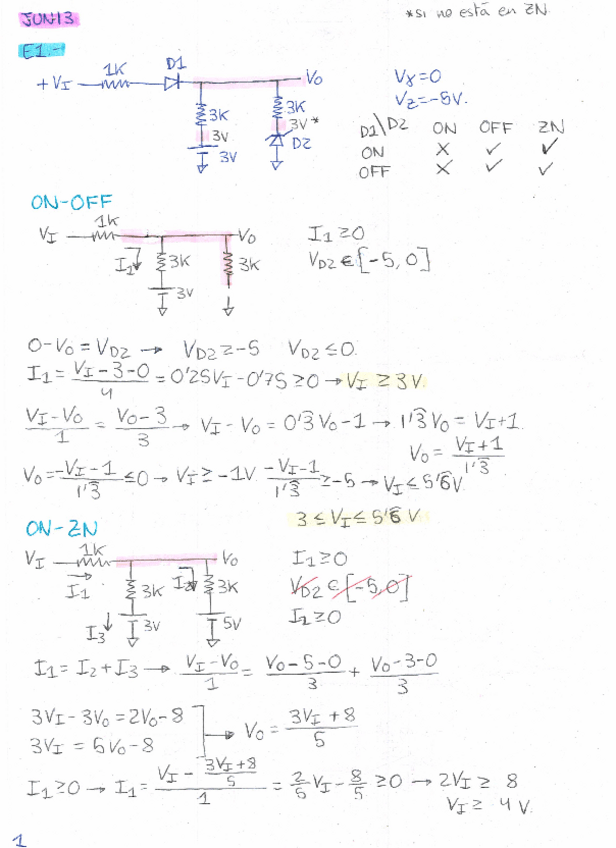 JUN13
*si no está en ZN
E1-
+VI 1K D1 Vo
3K 3V 3V
3K 3V* D2
Vγ=0
VZ=-5V.
D1\D2 ON OFF ZN
ON X ✓ ✓
OFF X ✓ ✓
ON-OFF
VI 1K Vo
I1 3K 3V 3K
I1≥0
VD2 ∈ [-5, 0]
0-Vo = VD2 → VD2 ≥ -5 VD2 ≤ 0.
I1 = (VI-3-0)/4 = 0'25VI - 0'75 ≥ 0 → VI ≥ 3V.
(VI-Vo)/1 = (Vo-3)/3 → VI-Vo = 0'3̂Vo-1 → 1'3̂Vo = VI+1.
Vo = (VI+1)/1'3̂
Vo = (-VI-1)/1'3̂ ≤ 0 → VI ≥ -1V (-VI-1)/1'3̂ ≥ -5 → VI ≤ 5'6̂V
3 ≤ VI ≤ 5'6̂ V
ON-ZN
VI 1K Vo
I1 3K I2 3K
I3 3V 5V
I1≥0
VD2 ∈ [-5,0]
I2≥0
I1 = I2+I3 → (VI-Vo)/1 = (Vo-5-0)/3 + (Vo-3-0)/3
3VI-3Vo = 2Vo-8
3VI = 5Vo-8
→ Vo = (3VI+8)/5
I1≥0 → I1 = (VI - (3VI+8)/5)/1 = 2/5 VI - 8/5 ≥ 0 → 2VI ≥ 8
VI ≥ 4V.
1